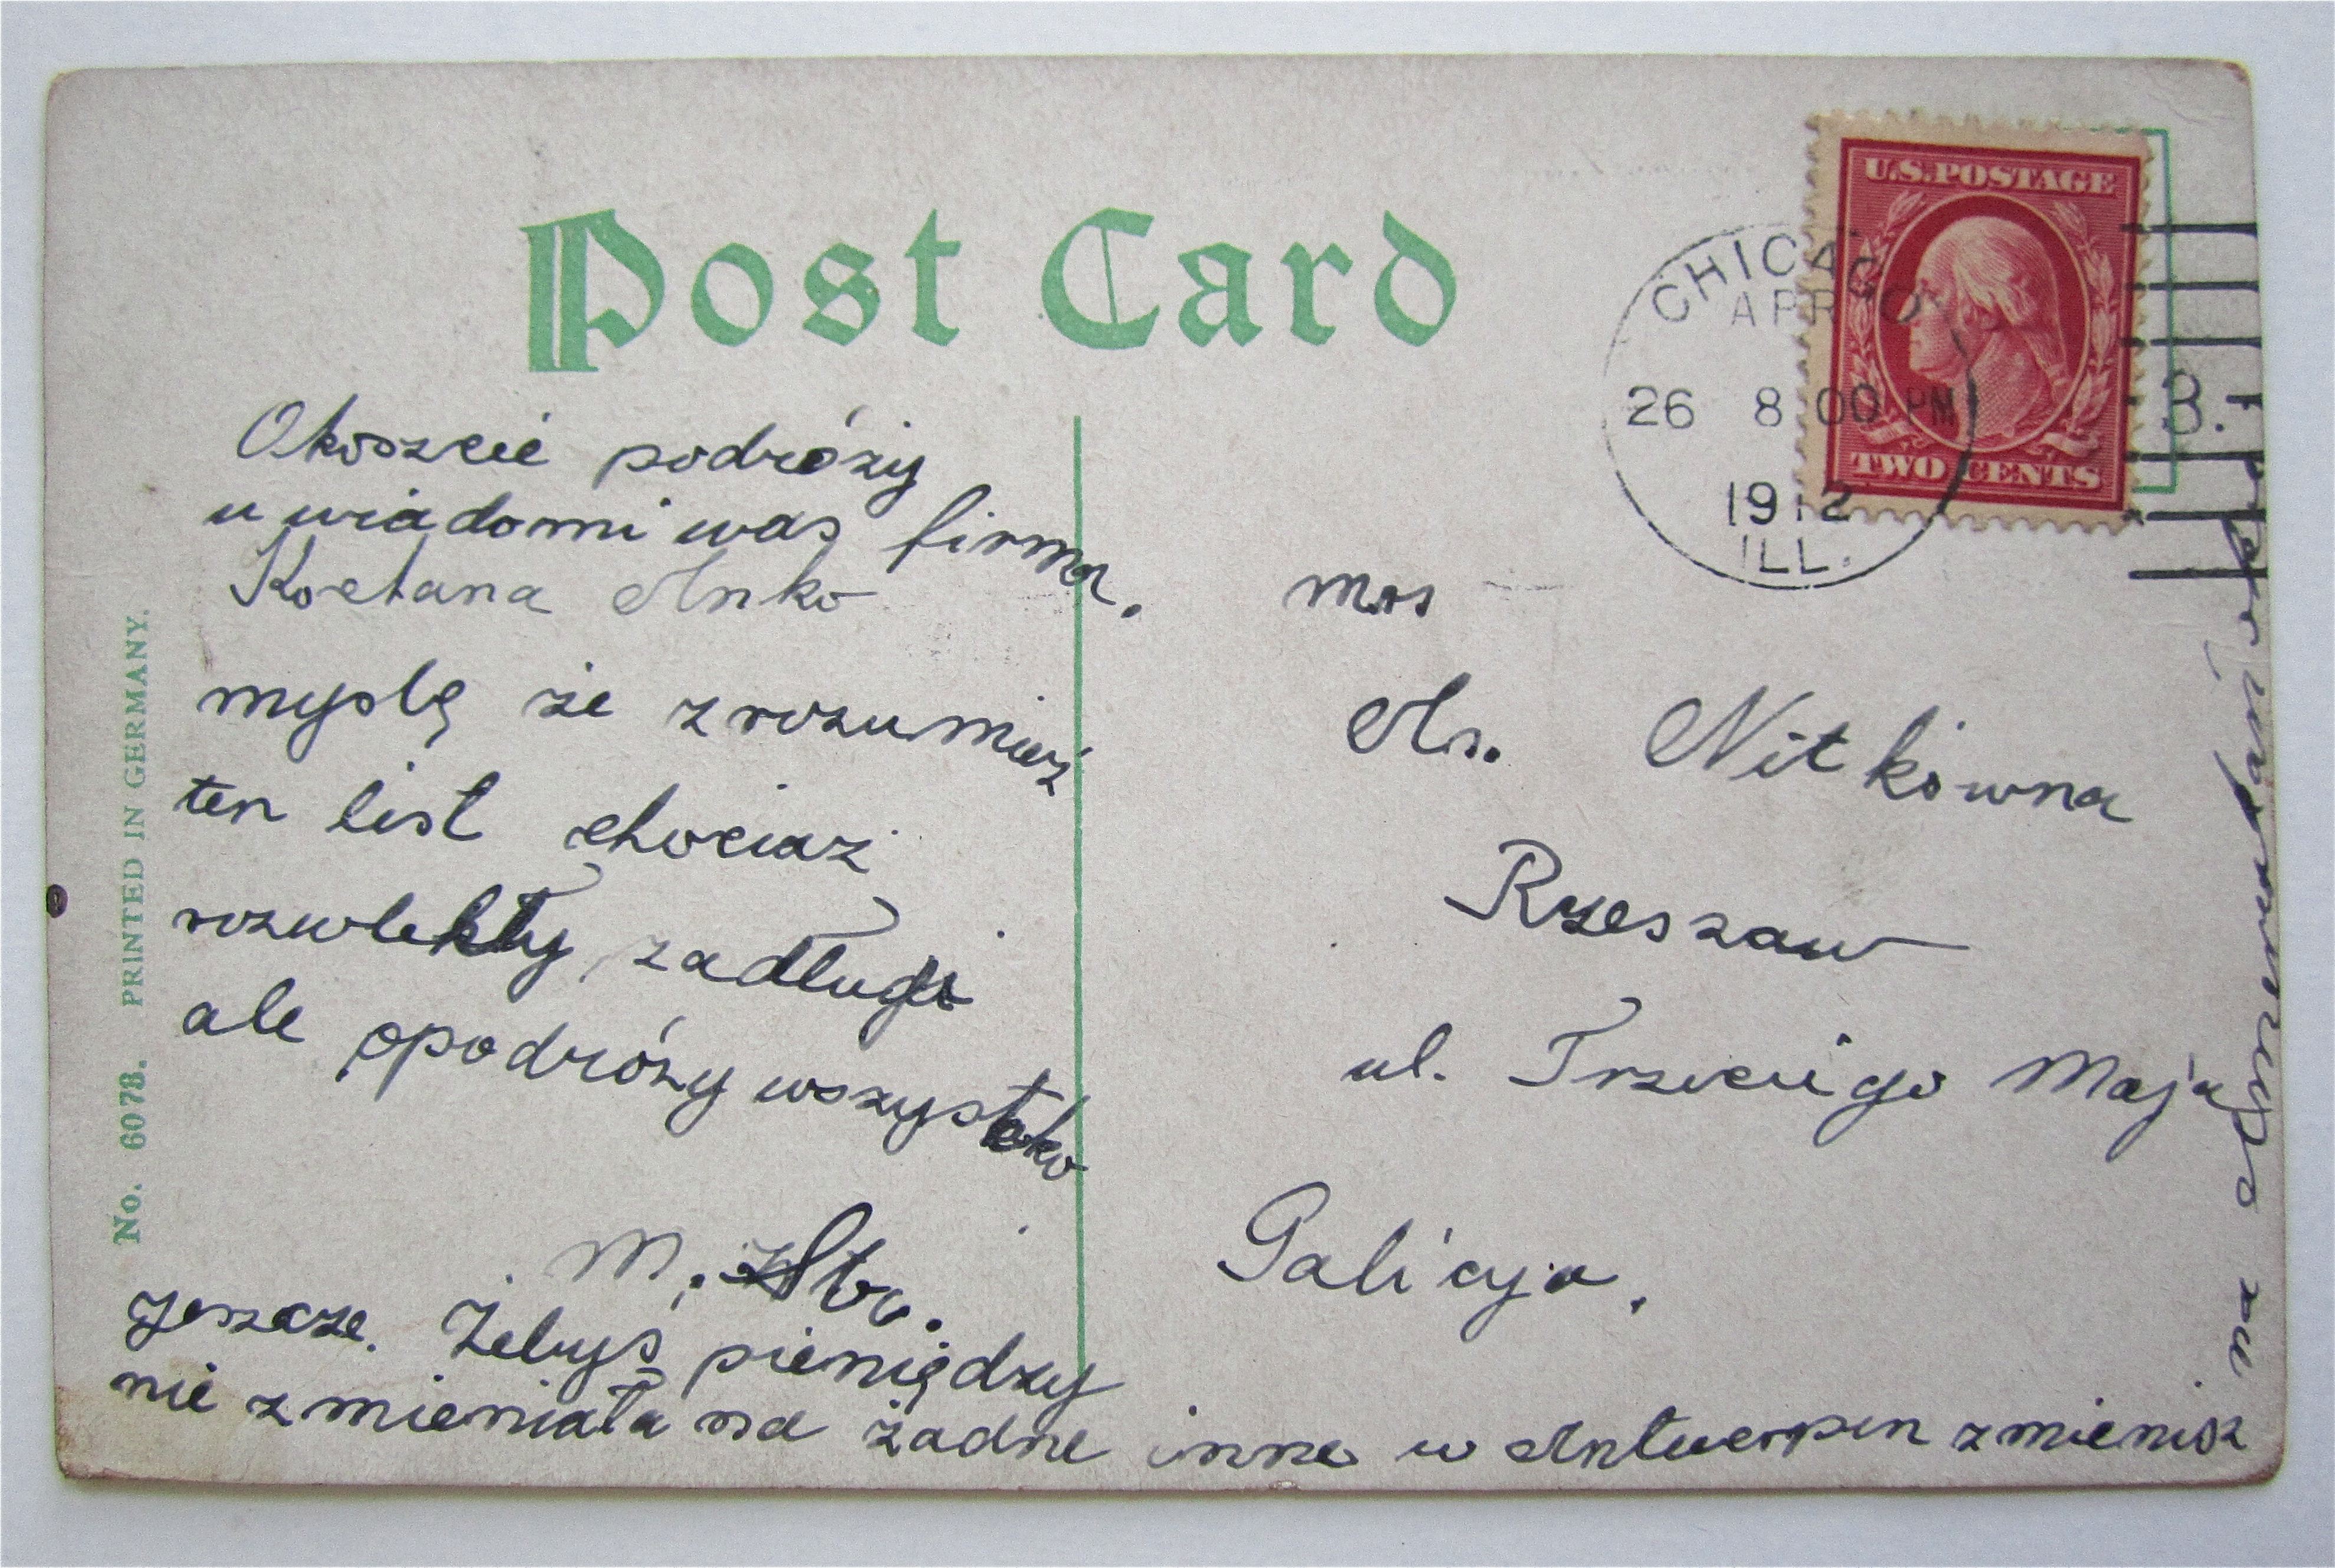 Post Card
U.S.POSTAGE
TWO CENTS
CHICAGO
APR
26 8 00 PM
1912
ILL.
3.
No. 6078. PRINTED IN GERMANY.
Okoszcie podróży
uwiadomi was firma.
Kochana Anko
myslę że zrozumiesz
ten list chociaż
rozwlekły zadługi
ale opodróży wszystko
M.
jeszcze. Żebyś pieniędzy
nie zmieniała na żadne inne w Antwerpen zmienisz
na Amerykańskie
Mrs
An. Nitkówna
Rzeszaw
ul. Trzeciego Maja
Galicya.